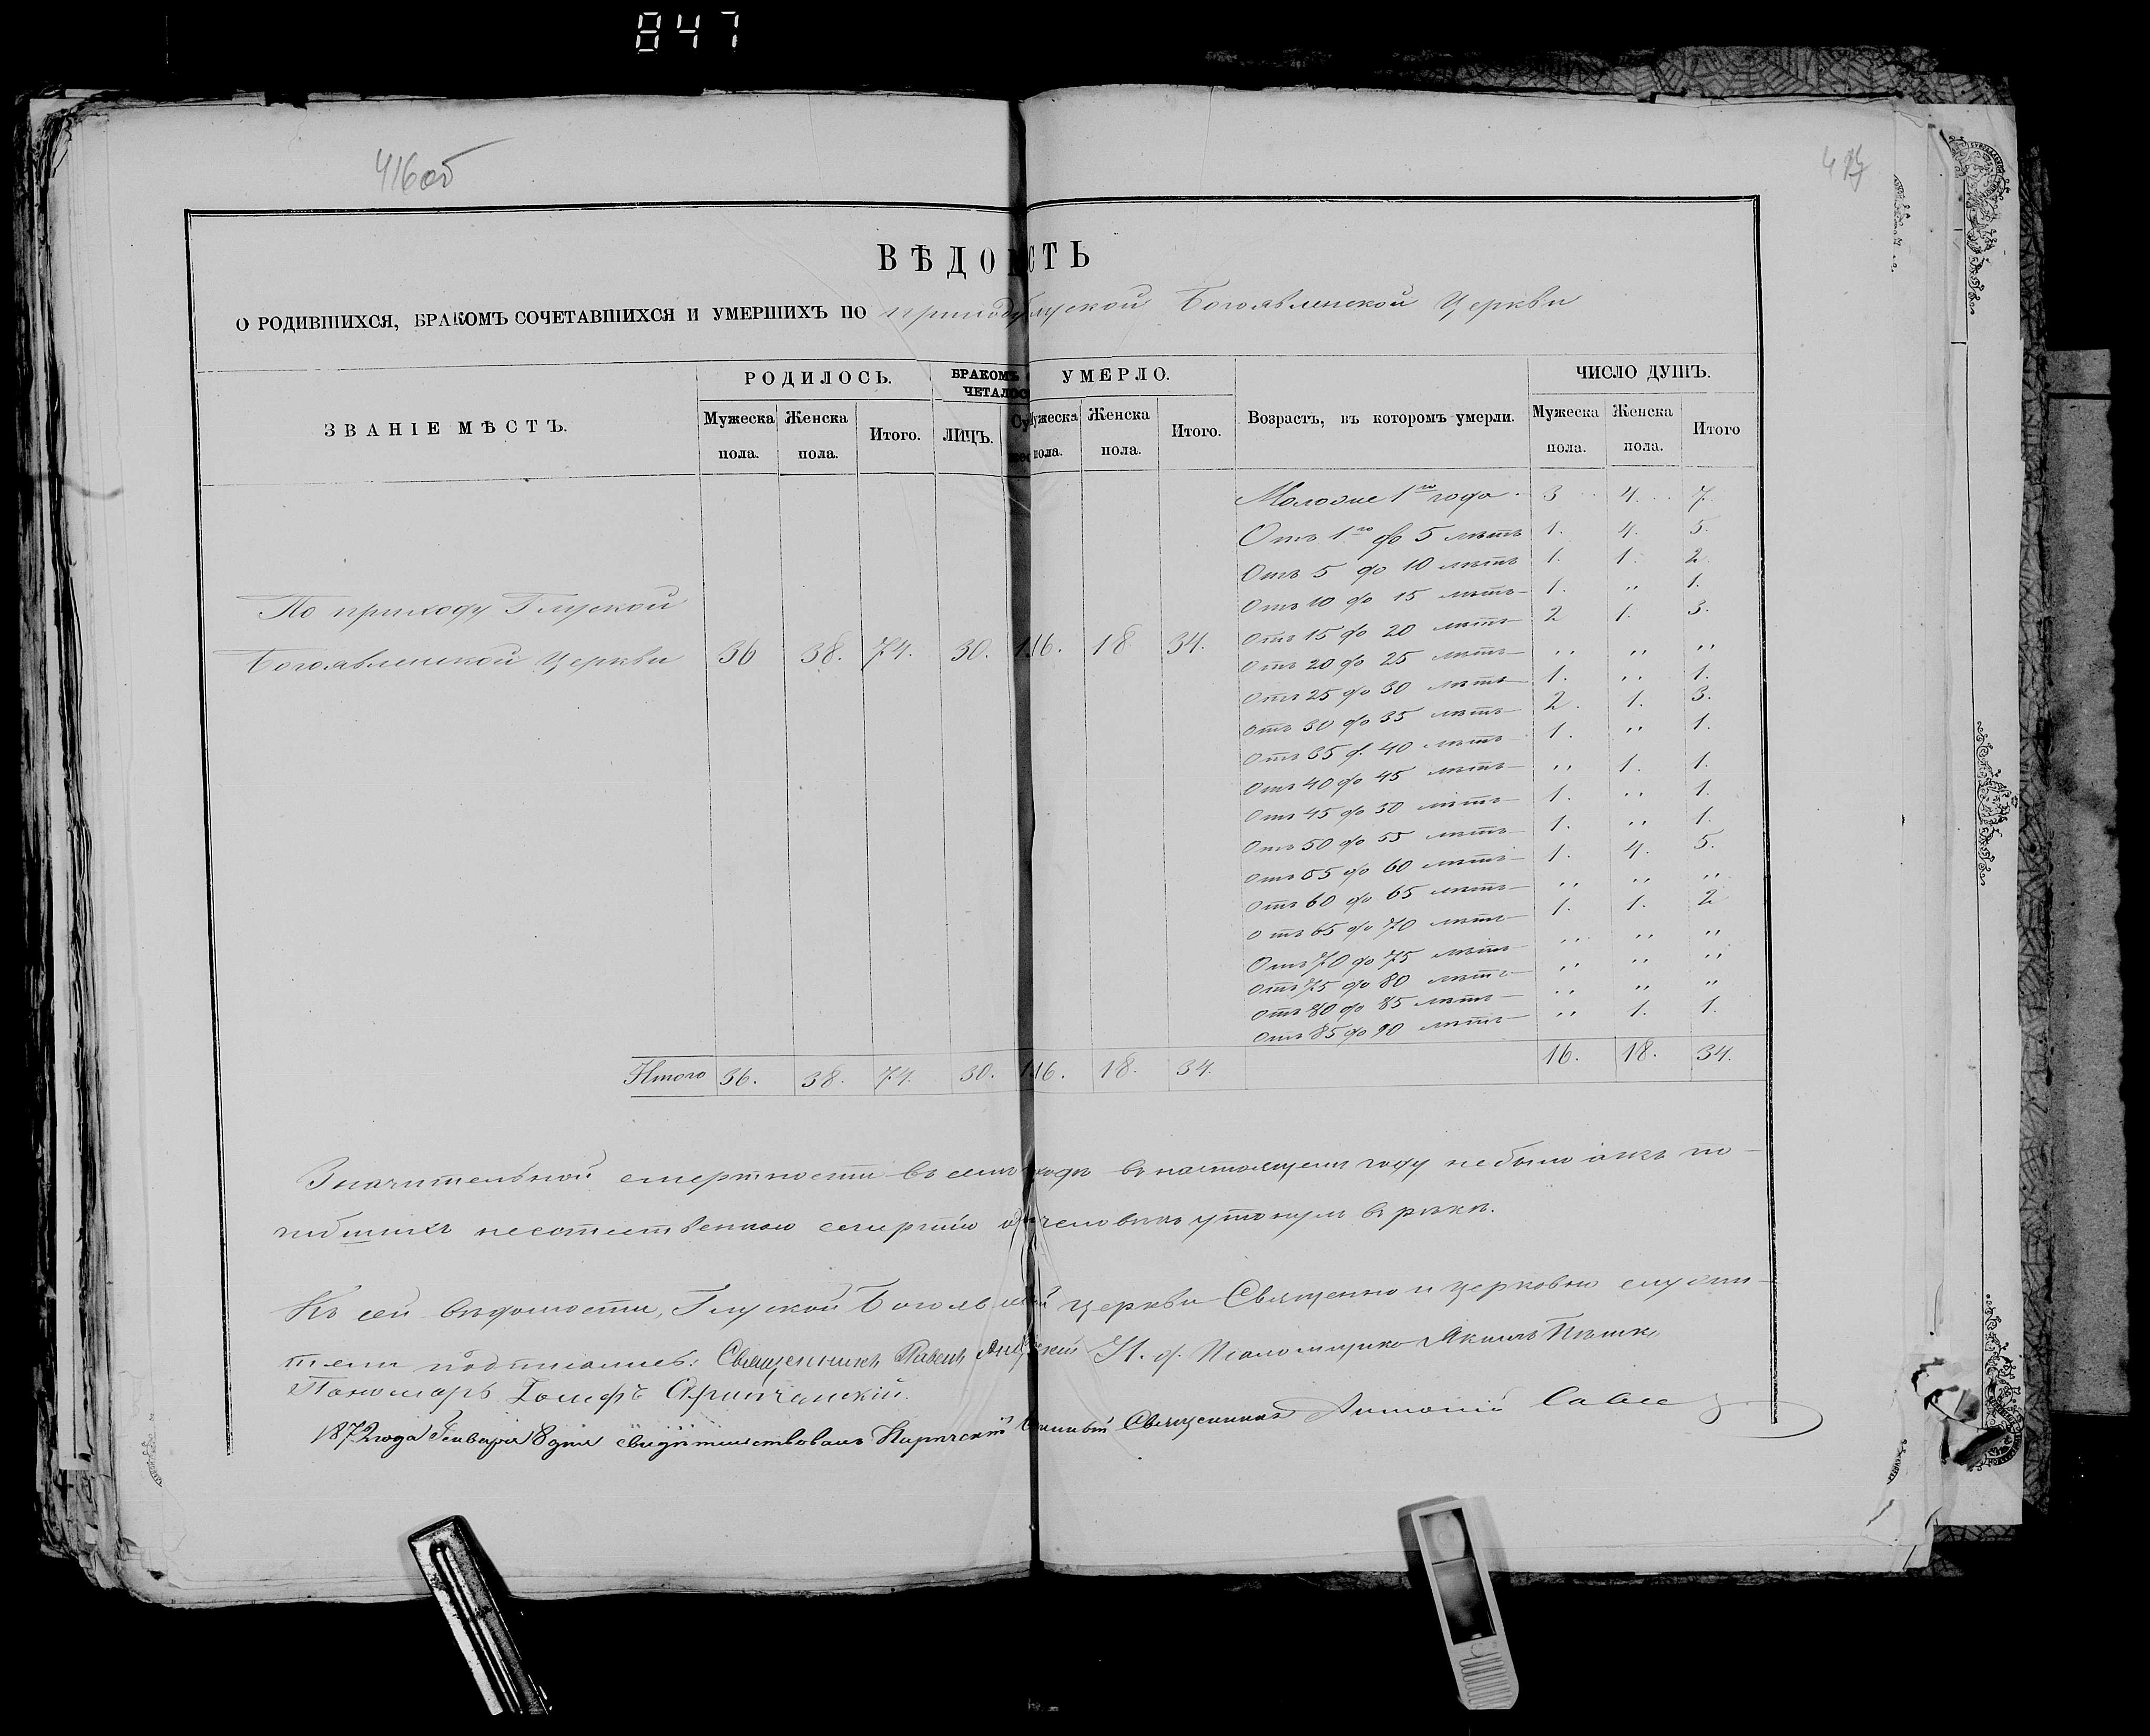 847
416об
ВѢДОМОСТЬ
О РОДИВШИХСЯ, БРАКОМЪ СОЧЕТАВШИХСЯ И УМЕРШИХЪ ПО приходу Глуской Богоявленской Церкви
ЗВАНІЕ МѢСТЪ. РОДИЛОСЬ. БРАКОМЪ ЧЕТАЛОСЬ УМЕРЛО. Возрастъ, въ которомъ умерли. ЧИСЛО ДУШЪ.
Мужеска пола. Женска пола. Итого. ЛИЦЪ. Мужеска пола. Женска пола. Итого. Мужеска пола. Женска пола. Итого
Моложе 1го года 3 4. 7.
Отъ 1го до 5 лѣтъ 1. 4. 5.
Отъ 5 до 10 лѣтъ 1. 1. 2
Отъ 10 до 15 лѣтъ 1. „ 1.
Отъ 15 до 20 лѣтъ 2 1. 3.
Отъ 20 до 25 лѣтъ „ „ „
Отъ 25 до 30 лѣтъ 1. „ 1.
Отъ 30 до 35 лѣтъ 2. 1. 3.
Отъ 35 д. 40 лѣтъ 1. „ 1.
Отъ 40 до 45 лѣтъ „ 1. 1.
Отъ 45 до 50 лѣтъ 1. „ 1.
Отъ 50 до 55 лѣтъ 1. „ 1.
Отъ 55 до 60 лѣтъ 1. 4. 5.
Отъ 60 до 65 лѣтъ „ „ „
Отъ 65 до 70 лѣтъ 1. 1. 2
Отъ 70 до 75 лѣтъ „ „ „
Отъ 75 до 80 лѣтъ „ „ „
Отъ 80 до 85 лѣтъ „ „ „
Отъ 85 до 90 лѣтъ „ 1. 1.
По приходу Глуской
Богоявленской Церкви 36 38. 74. 30. 16. 18 34.
Итого 36. 38. 74. 30. 16. 18. 34. 16. 18. 34.
Значительной смертности въ семъ въ настоящемъ году не было
несстественною смертію человѣкъ утонулъ въ рѣкѣ.
Къ сей вѣдомости, Глуской Церкви Священно и церковно служи-
тели подписались: Священникъ Павелъ И. д. Псаломщика Якимъ
Пономарь Іосифъ
1872 года Генваря 8 дня свидѣтельствовалъ Священникъ Антоній